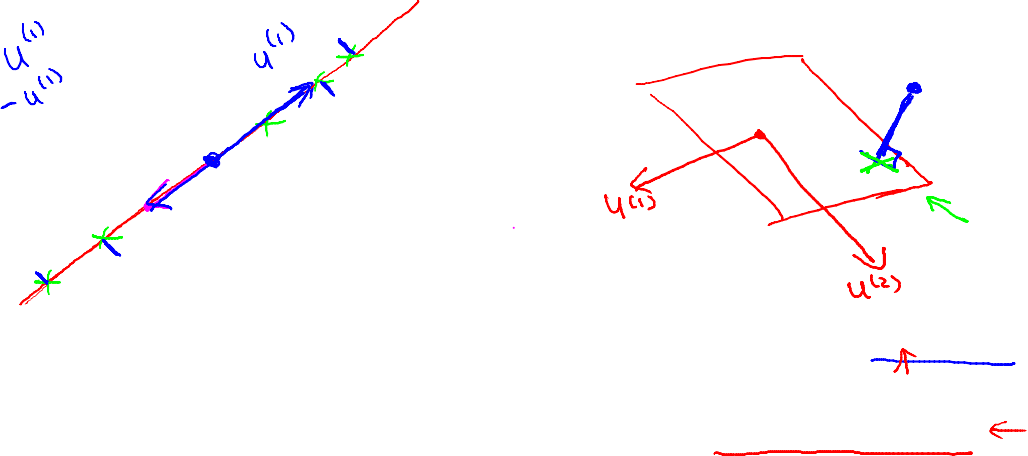 u^(1)
-u^(1)
u^(1)
u^(1)
u^(2)